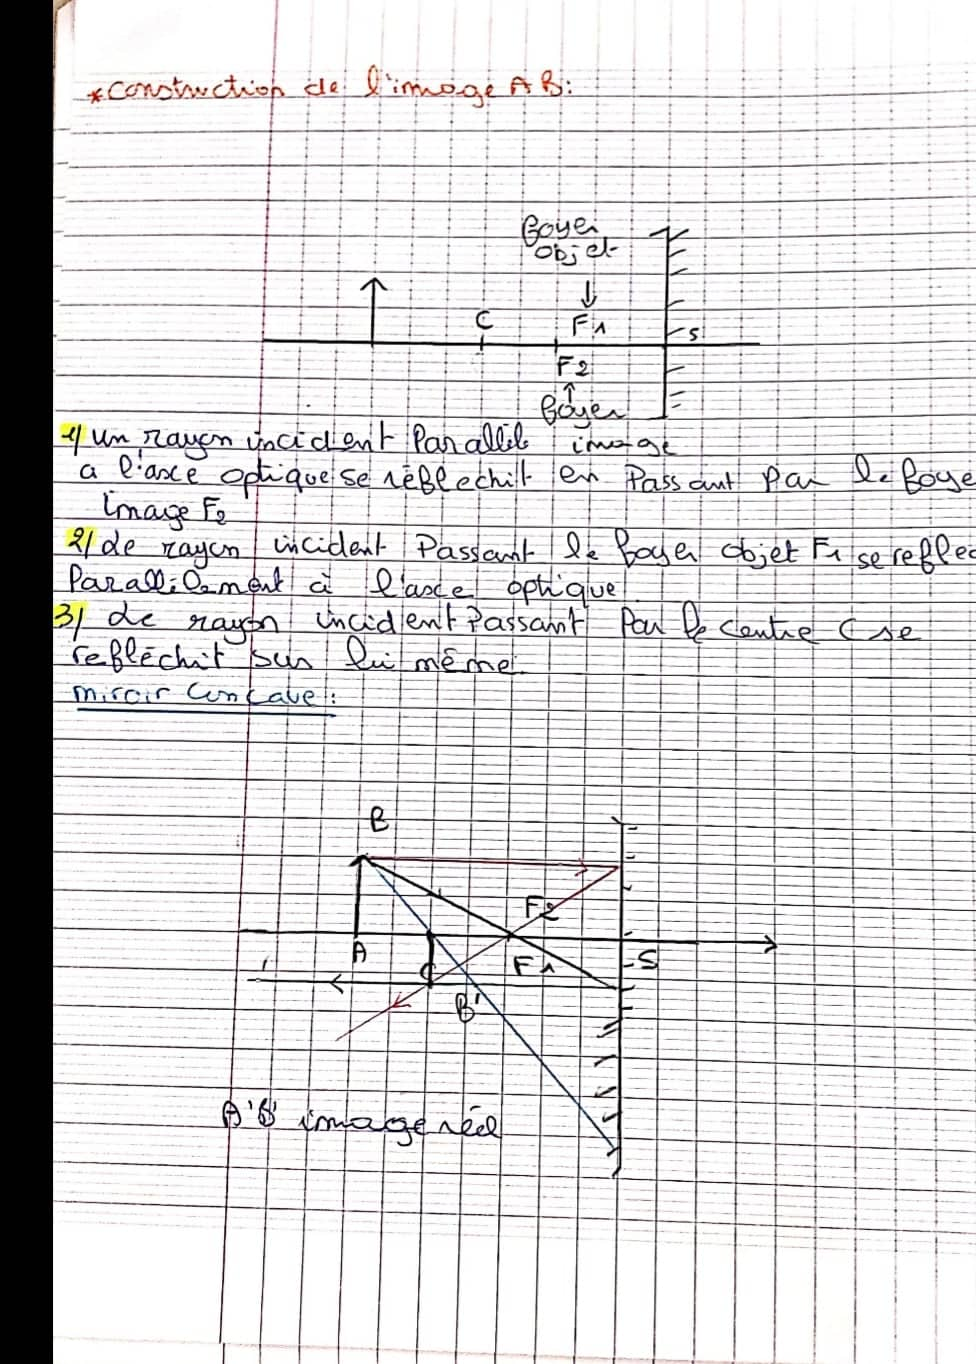 * construction de l'image AB:
Foyer
objet
C
F1
S
F2
Foyer
image
1/ un rayon incident Parallèle
a l'axe optique se réflechit en Passant Par le foye
image F2
2/ Le rayon incident Passant le foyer objet F1 se reflec
Parallèlement à l'axe optique
3/ Le rayon incident Passant Par le centre C se
reflèchit sur lui même.
miroir concave:
B
F2
A
C
F1
S
B'
A'B' image réel